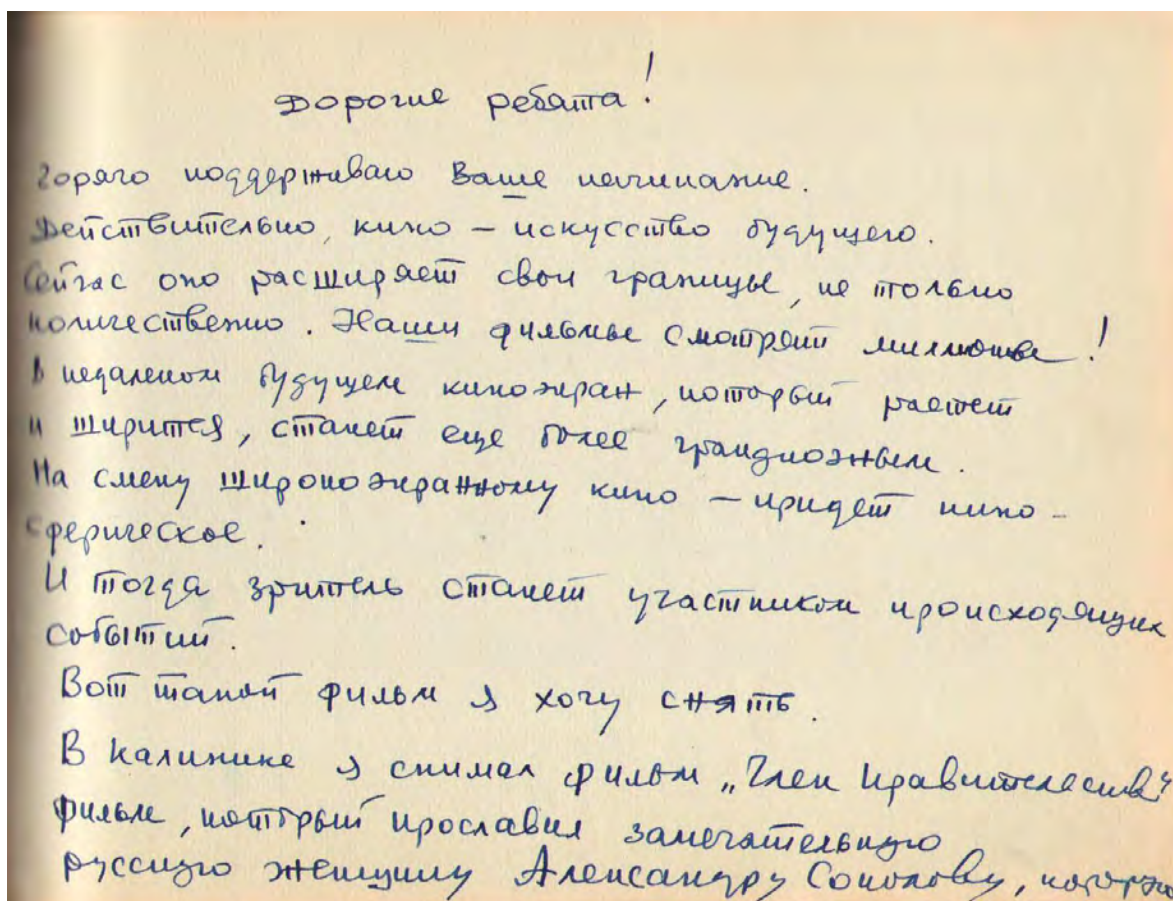 Дорогие ребята!
Горячо поддерживаю Ваше начинание.
Действительно, кино – искусство будущего.
Сейчас оно расширяет свои границы, не только
количественно. Наши фильмы смотрят миллионы!
В недалеком будущем киноэкран, который растет
и ширится, станет еще более грандиозным.
На смену широкоэкранному кино – придет кино-
сферическое.
И тогда зритель станет участником происходящих
событий.
Вот такой фильм я хочу снять.
В Калинине я снимал фильм „Член Правительства"
фильм, который прославил замечательную
русскую женщину Александру Соколову, которая